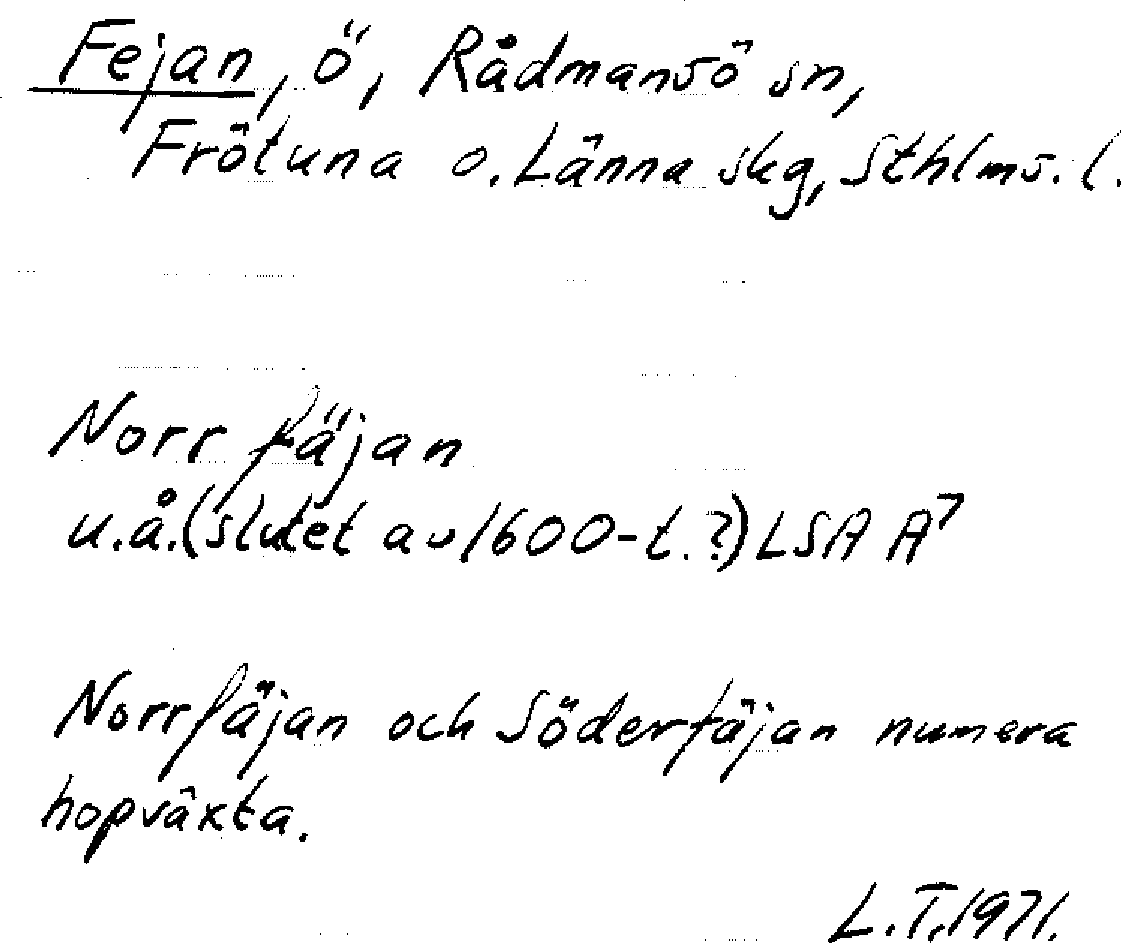 Fejan, ö, Rådmansö sn,
Frötuna o. Länna skg, Sthlms. l.
Norr fäjan
u.å. (slutet av 1600-t.?) LSA A7
Norrfäjan och Söderfäjan numera
hopväxta.
L.T. 1971.